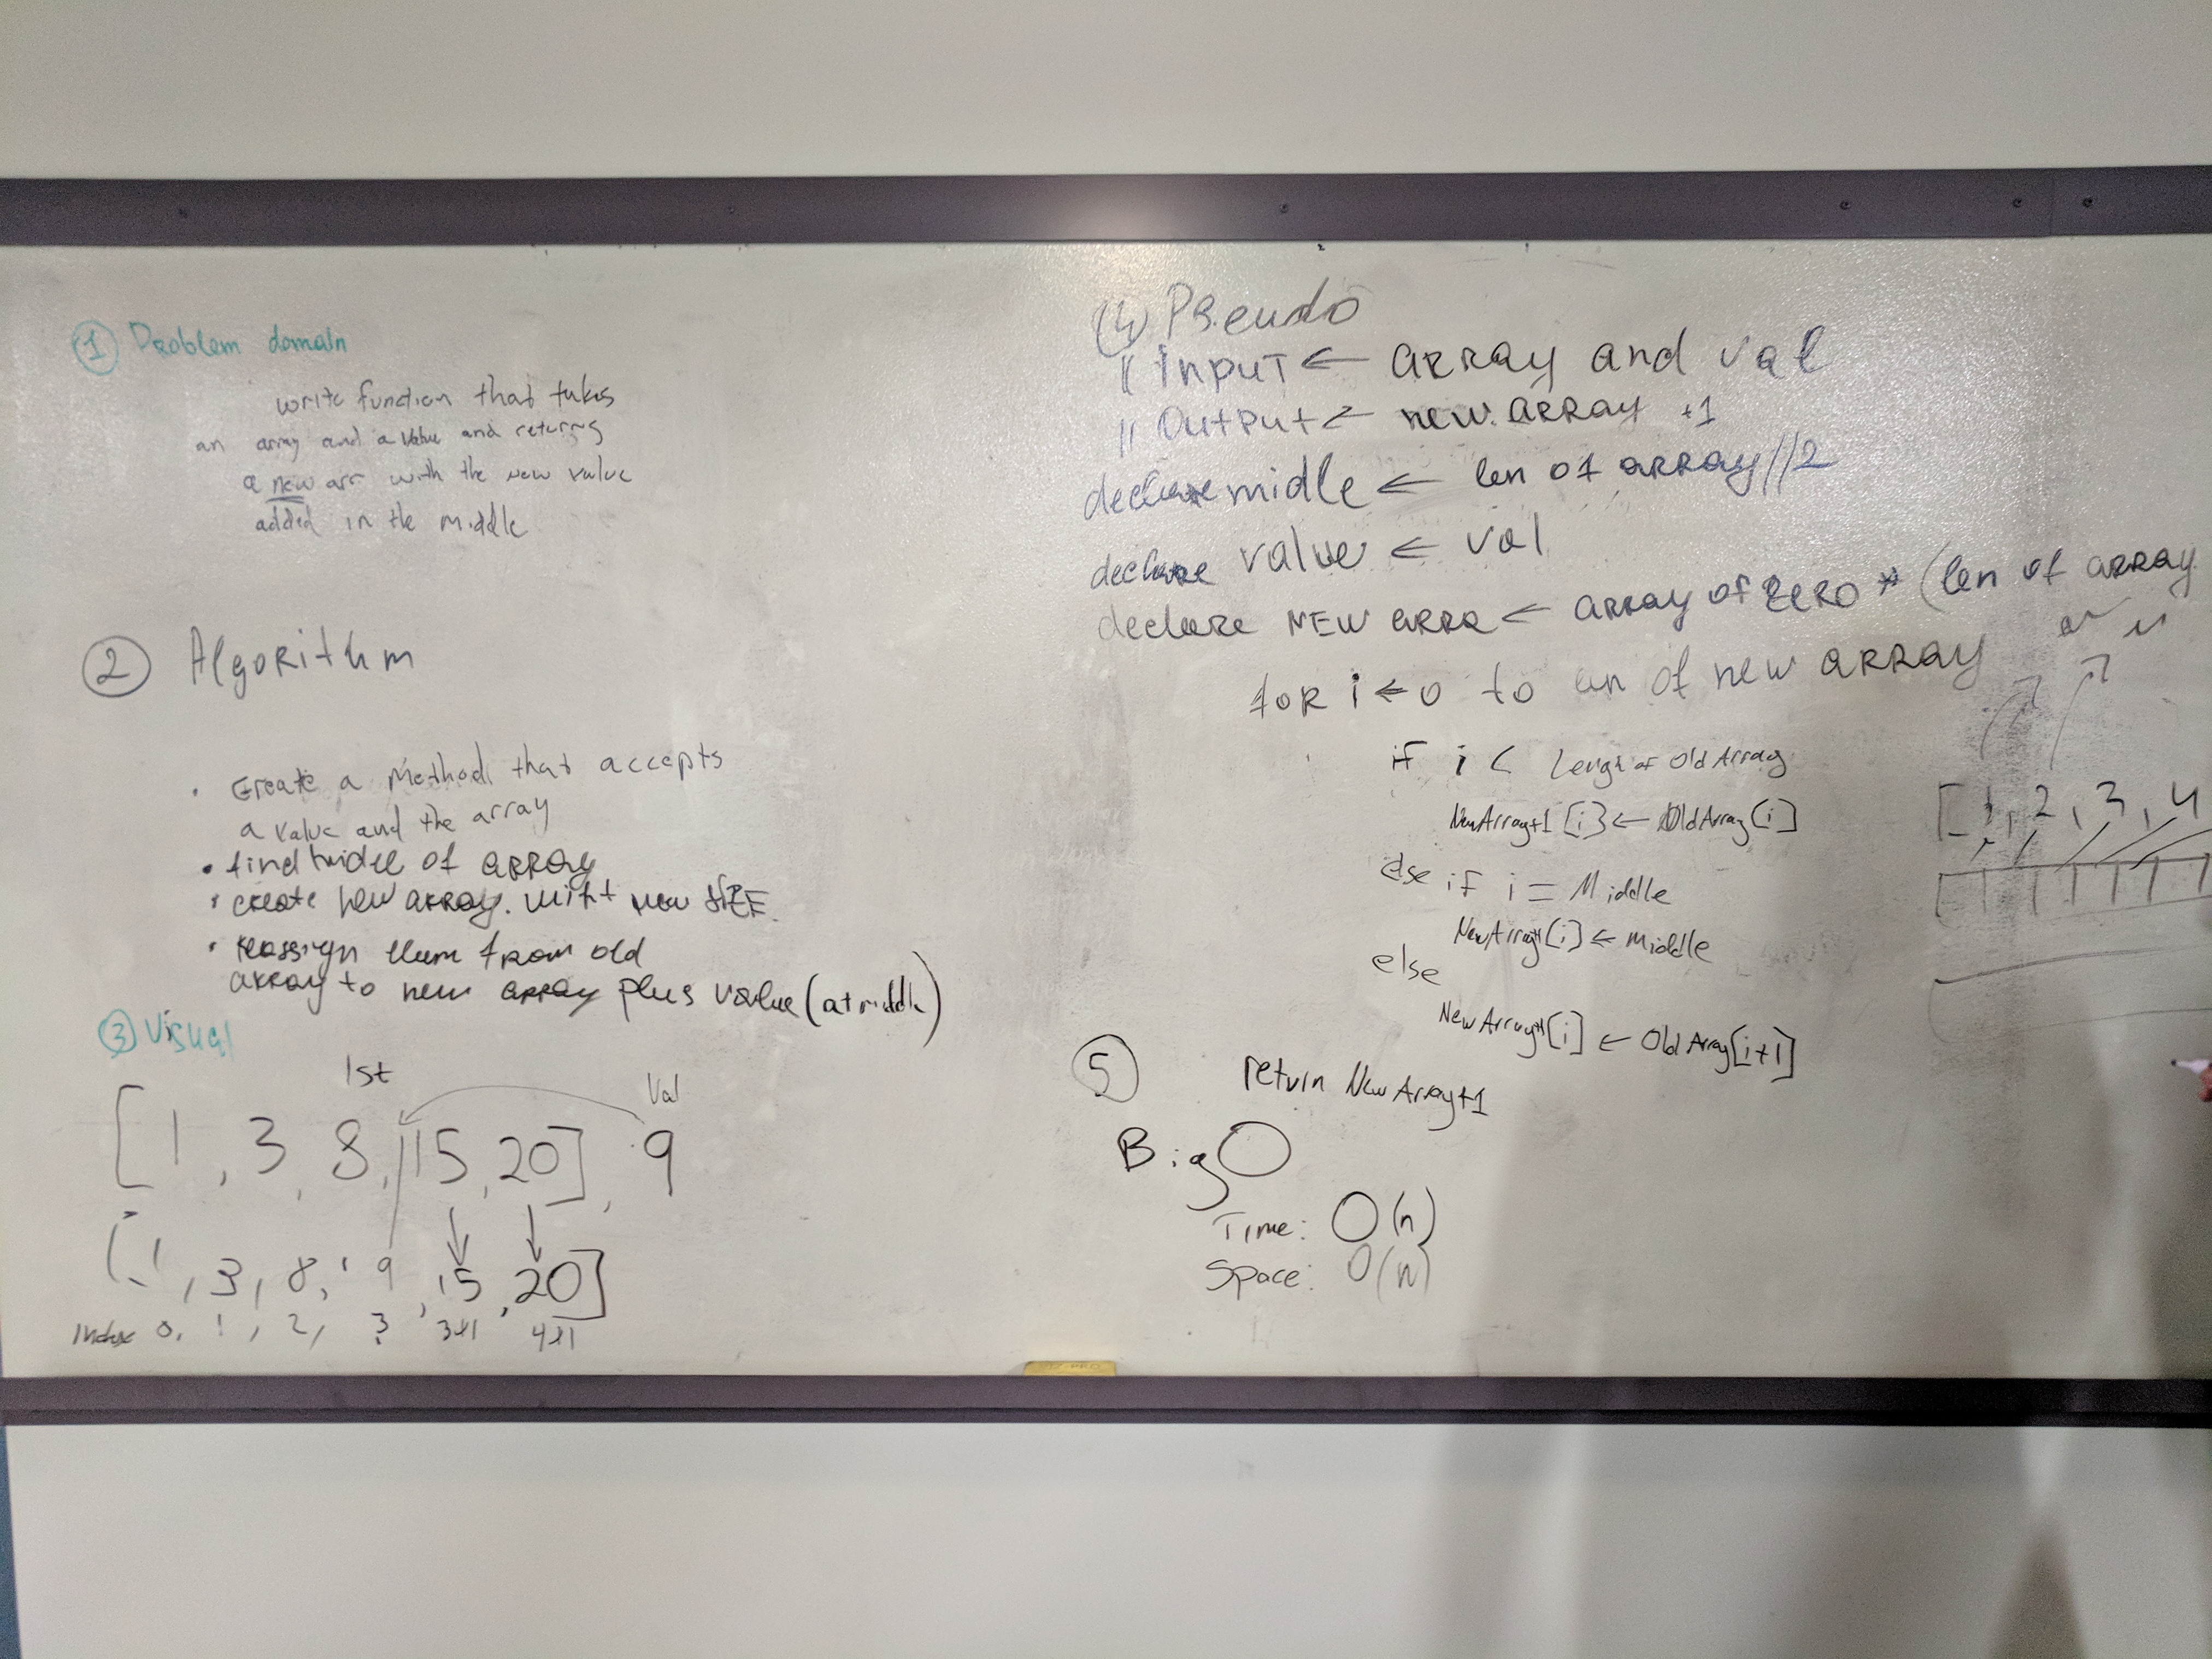 1 Problem domain
write function that takes
an array and a value and returns
a new arr with the new value
added in the middle
2 Algorithm
• Create a method that accepts
a value and the array
• find midle of array
• create new array. with new SIZE
• reassign elem from old
array to new array plus value (at middle)
3 Visual
1st
Val
[1, 3, 8, 15, 20], 9
[1, 3, 8, 9, 15, 20]
Index 0, 1, 2, 3 3+1 4+1
(4) Pseudo
// Input ← array and val
// Output ← new array +1
declare midle ← len of array//2
declare value ← val
declare NEW arra ← array of zero * (len of array
for i ← 0 to len of new array
if i < Length of Old Array
NewArray+1[i] ← OldArray[i]
else if i = Middle
NewArray+1[i] ← Middle
else
NewArray+1[i] ← Old Array[i+1]
return NewArray+1
[1, 2, 3, 4
5
Big O
Time: O(n)
Space: O(n)